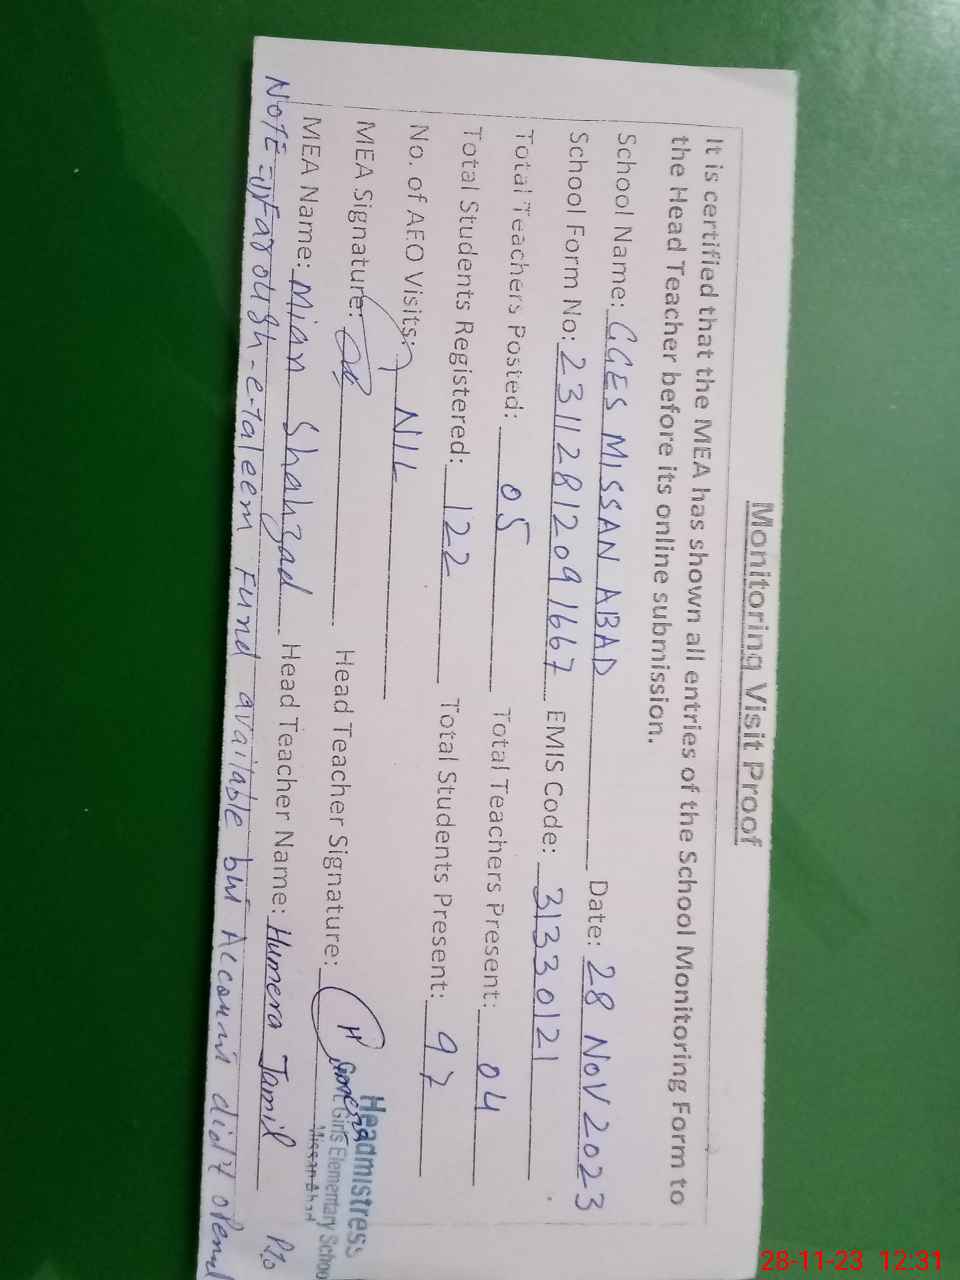 Monitoring Visit Proof
It is certified that the MEA has shown all entries of the School Monitoring Form to
the Head Teacher before its online submission.
School Name: GGES MISSAN ABAD Date: 28 NOV 2023
School Form No: 23112812091667 EMIS Code: 31330121
Total Teachers Posted: 05 Total Teachers Present: 04
Total Students Registered: 122 Total Students Present: 97
No. of AEO Visits: NIL
MEA Signature: Head Teacher Signature:
Headmistress
Govt Girls Elementary School
Missan Abad
MEA Name: Mian Shahzad Head Teacher Name: Humera Jamil
NOTE =1) Farough-e-taleem Fund available but Account did't opened
PTO
28-11-23 12:31